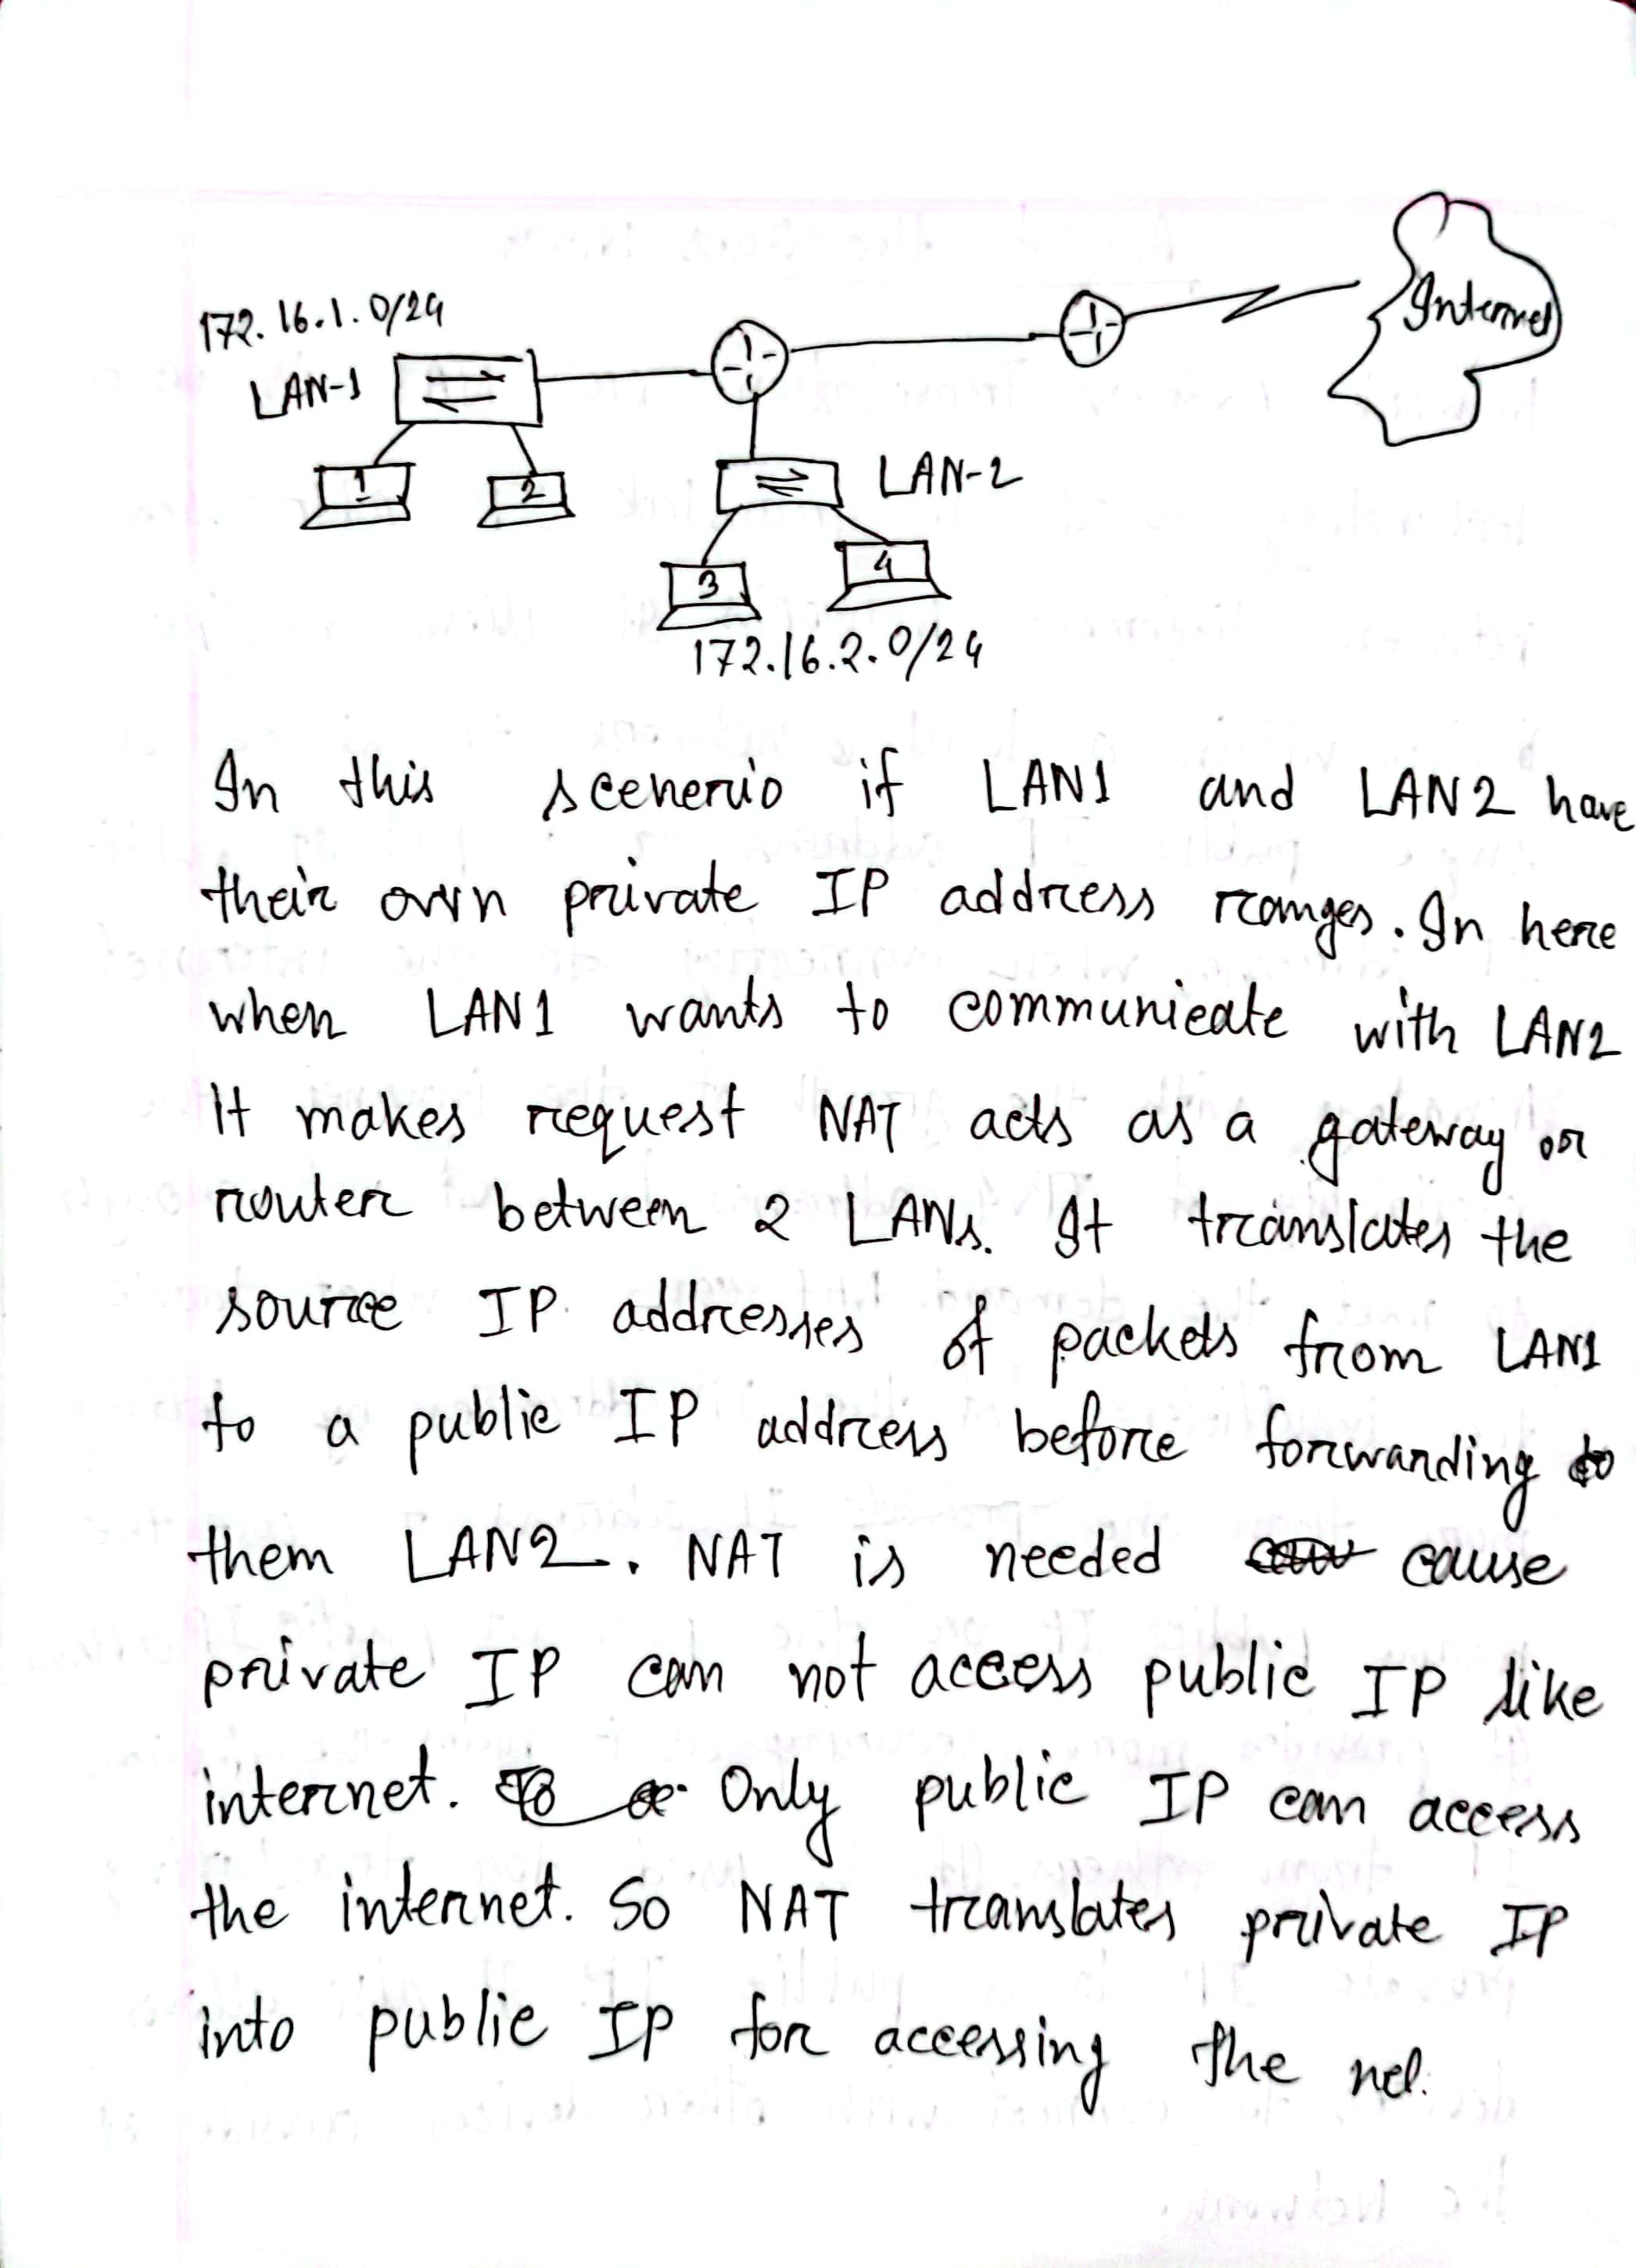 172.16.1.0/24
LAN-1
1
2
Internet
LAN-2
3
4
172.16.2.0/24
In this scenerio if LAN1 and LAN2 have
their own private IP address ranges. In here
when LAN1 wants to communicate with LAN2
It makes request NAT acts as a gateway or
router between 2 LANs. It translates the
source IP addresses of packets from LAN1
to a public IP address before forwarding to
them LAN2. NAT is needed cause
private IP can not access public IP like
internet. Only public IP can access
the internet. So NAT translates private IP
into public IP for accessing the net.